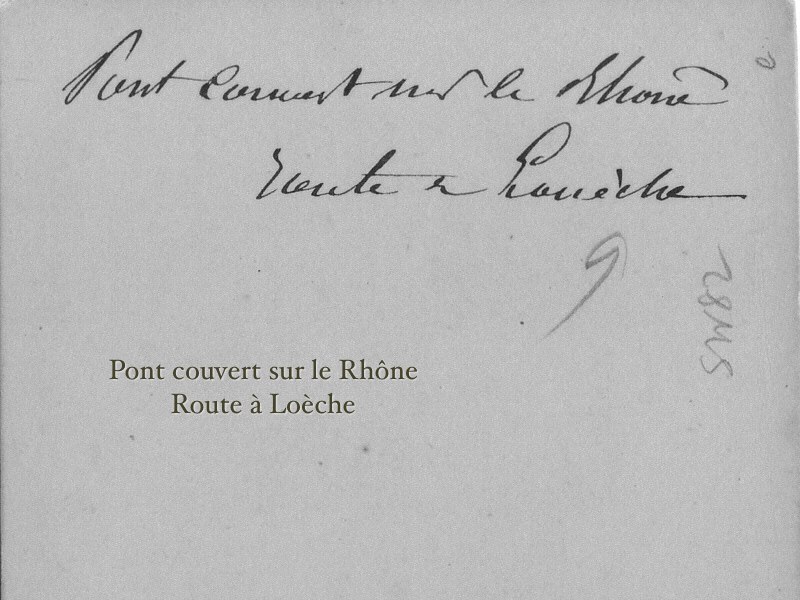 Pont couvert sur le Rhône
Route à Louèche
9
28M5
Pont couvert sur le Rhône
Route à Loèche